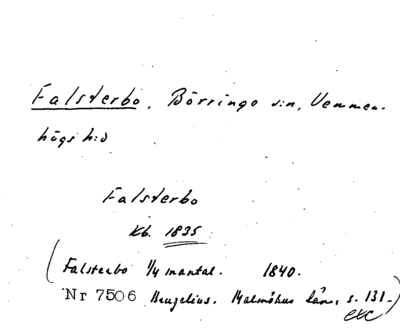 Falsterbo, Börringe s:n, Vemmen-
högs h:d
Falsterbo
Kb. 1835
(Falsterbo 1/4 mantal. 1840.
Nr 7506 Bruzelius. Malmöhus län, s. 131.)